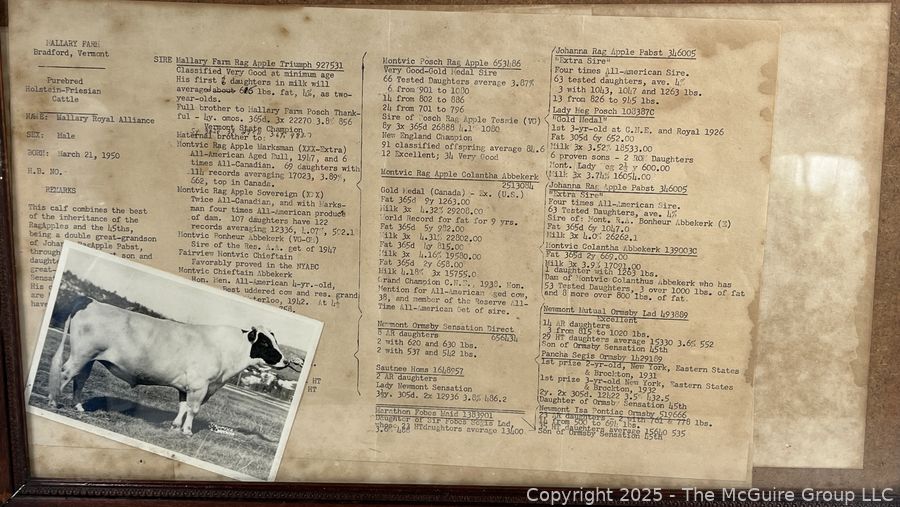 MALLARY FARM
Bradford, Vermont
Purebred
Holstein-Friesian
Cattle
NAME: Mallary Royal Alliance
SEX: Male
BORN: March 21, 1950
H.B. NO.
REMARKS
This calf combines the best
of the inheritance of the
RagApples and the 45ths,
being a double great-grandson
of Johanna RagApple Pabst,
through son and
daught
great-
Sensa
His
are
SIRE Mallary Farm Rag Apple Triumph 927531
Classified Very Good at minimum age
His first 4 daughters in milk will
average about 6 5 lbs. fat, 4%, as two-
year-olds.
Full brother to Mallary Farm Posch Thank-
ful - 4y. 0mos, 365d, 3x 22270 3.8% 856
Vermont State Champion
Maternal brother to:
Montvic Rag Apple Marksman (XXX-Extra)
All-American Aged Bull, 1947, and 6
times All-Canadian. 69 daughters with
114 records averaging 17023, 3.89%,
662, top in Canada.
Montvic Rag Apple Sovereign (XXX)
Twice All-Canadian, and with Marks-
man four times All-American produce
of dam. 107 daughters have 122
records averaging 12336, 4.07%, 502.1
Montvic Bonheur Abbekerk (VG-GM)
Sire of the Res. A.A. get of 1947
Fairview Montvic Chieftain
Favorably proved in the NYABC
Montvic Chieftain Abbekerk
Hon. Men. All-American 4-yr.-old,
Best uddered cow and res. grand
terloo, 1942. At 4½
758.
HT
HT
Montvic Posch Rag Apple 653486
Very Good-Gold Medal Sire
66 Tested Daughters average 3.87%
6 from 901 to 1080
14 from 802 to 886
24 from 701 to 796
Sire of Posch Rag Apple Tossie (VG)
8y 3x 365d 26888 4.1% 1080
New England Champion
91 classified offspring average 84.6
12 Excellent; 34 Very Good
Montvic Rag Apple Colantha Abbekerk
2513084
Gold Medal (Canada) - Ex. (U.S.)
Fat 365d 9y 1263.00
Milk 3x 4.32% 29208.00
World Record for fat for 9 yrs.
Fat 365d 5y 982.00
Milk 3x 4.31% 22802.00
Fat 365d 4y 815.00
Milk 3x 4.16% 19580.00
Fat 365d 2y 658.00
Milk 4.18% 3x 15755.0
Grand Champion C.N.E., 1938. Hon.
Mention for All-American aged cow,
38, and member of the Reserve All-
Time All-American Get of sire.
Newmont Ormsby Sensation Direct
8 AR daughters 656434
2 with 620 and 630 lbs.
2 with 537 and 542 lbs.
Sautnee Homs 1648957
2 AR daughters
Lady Newmont Sensation
3½y. 305d. 2x 12936 3.8% 486.2
Marathon Fobes Maid 1383901
Daughter of Sir Fobes Segis Lad,
whose 23 HTdaughters average 13400
3.6% 488
Johanna Rag Apple Pabst 346005
"Extra Sire"
Four times All-American Sire.
63 tested daughters, ave. 4%
3 with 1043, 1047 and 1263 lbs.
13 from 826 to 945 lbs.
Lady Meg Posch 108387C
"Gold Medal"
1st 3-yr-old at C.N.E. and Royal 1926
Fat 305d 6y 652.00
Milk 3x 3.52% 18533.00
6 proven sons - 2 ROM Daughters
Mont. Lady Meg 2½ y 600.00
Milk 3x 3.74% 16054.00
Johanna Rag Apple Pabst 346005
"Extra Sire"
Four times All-American Sire.
63 Tested Daughters, ave. 4%
Sire of: Mont. R.A. Bonheur Abbekerk (E)
Fat 365d 6y 1047.0
Milk 3x 4.0% 26262.1
Montvic Colantha Abbekerk 139003C
Fat 365d 2y 669.00
Milk 3x 3.9% 17091.00
1 daughter with 1263 lbs.
Dam of Montvic Colanthus Abbekerk who has
53 Tested Daughters, 3 over 1000 lbs. of fat
and 8 more over 800 lbs. of fat.
Newmont Mutual Ormsby Lad 493889
Excellent
14 AR daughters
3 from 815 to 1020 lbs.
29 HT daughters average 15330 3.6% 552
Son of Ormsby Sensation 45th
Pancha Segis Ormsby 1429189
1st prize 2-yr-old, New York, Eastern States
& Brockton, 1931
1st prize 3-yr-old New York, Eastern States
& Brockton, 1932
2y. 2x 305d. 12422 3.5% 432.5
Daughter of Ormsby Sensation 45th
Newmont Isa Pontiac Ormsby 519666
AR daughters - 2 with 761 & 778 lbs.
from 500 to 694 lbs.
HT daughters average 15640 535
Son of Ormsby Sensation 45th
Copyright 2025 - The McGuire Group LLC